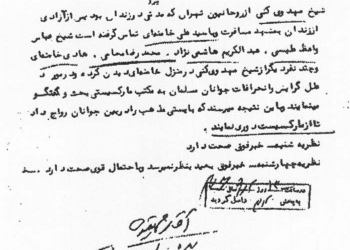 شیخ مهدوی کنی ازروحانیون تهران که مدتی درزندان بود پس ازآزادی
اززندان بمشهد مسافرت وباسید علی خامنه‌ای تماس گرفته است شیخ عباس
واعظ طبسی . عبد الکریم هاشمی نژاد . محمد رضا محامی . هادی خامنه‌ای
وچند نفردیگرازشیخ مهدوی‌کنی درمنزل خامنه‌ای دیدن کرده و
علل گرایش وانحرافات جوانان مسلمان به مکتب مارکسیستی بحث وگفتگو
مینمایند وباین نتیجه میرسند که بایستی مذهب رادربین جوانان رواج داد
تاازمارکسیست دوری نمایند .
نظریه شنبه . خبرفوق صحت دارد
نظریه چهارشنبه . خبرفوق بعید بنظرنمیرسد وباحتمال قوی صحت دارد .